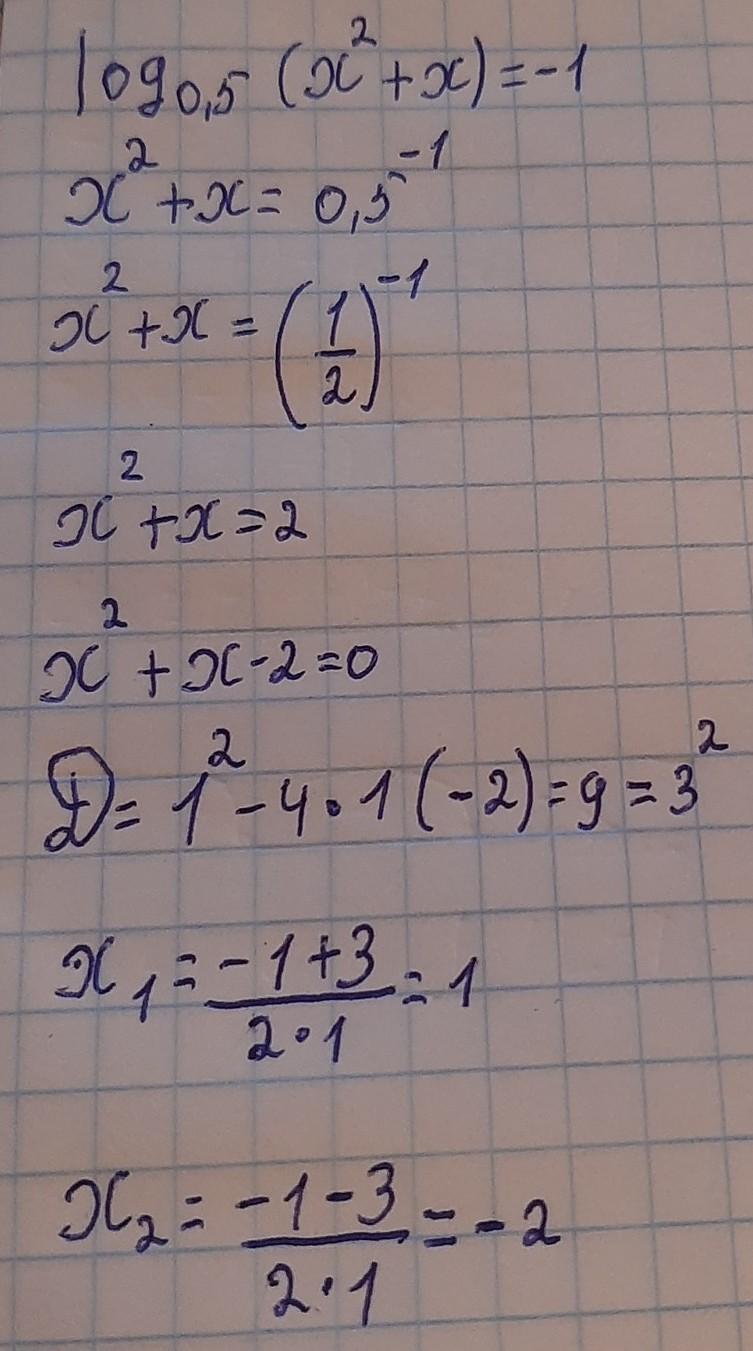 log₀,₅ (x² + x) = -1
x² + x = 0,5⁻¹
x² + x = (1/2)⁻¹
x² + x = 2
x² + x - 2 = 0
D = 1² - 4 · 1 (-2) = 9 = 3²
x₁ = (-1 + 3)/(2 · 1) = 1
x₂ = (-1 - 3)/(2 · 1) = -2